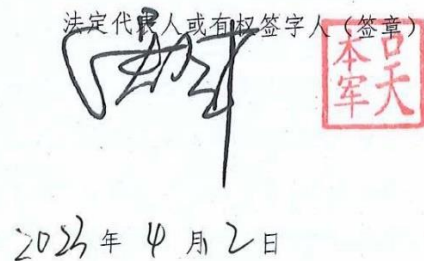 法定代表人或有权签字人（签章）
吴本军
2023年4月2日